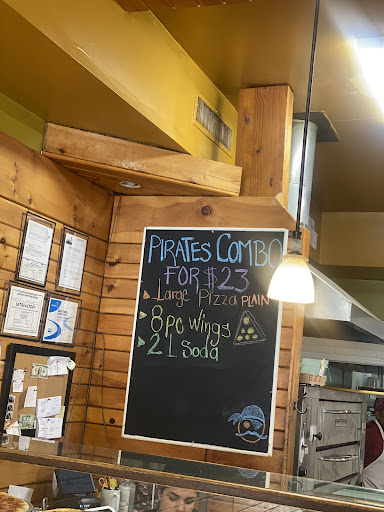 PIRATES COMBO
FOR $23
Large Pizza PLAIN
8 pc wings
2 L Soda